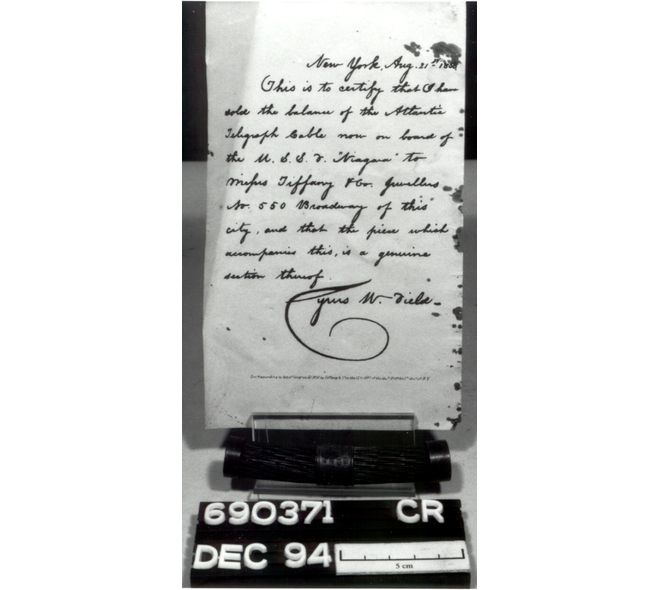 New York, Aug. 21st 1858
This is to certify that I have
sold the balance of the Atlantic
Telegraph Cable now on board of
the U. S. S. F. "Niagara" to
Messrs Tiffany & Co. Jewellers
No. 550 Broadway of this
city, and that the piece which
accompanies this, is a genuine
section thereof.
Cyrus W. Field
690371 CR
DEC 94
5 cm